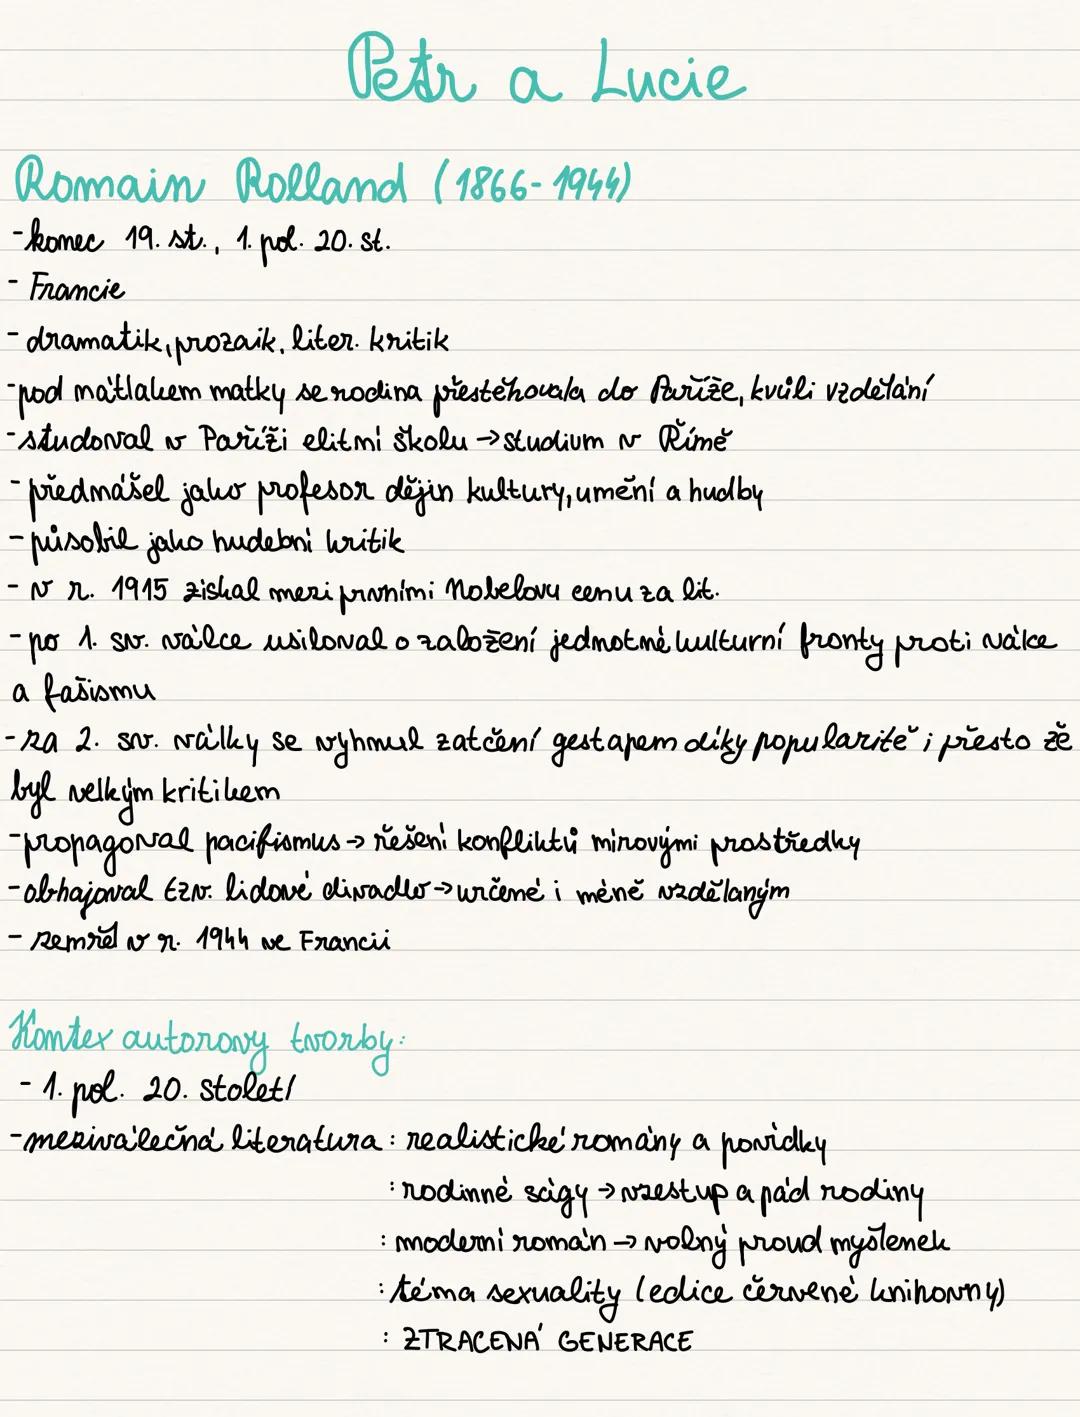 Petr a Lucie
Romain Rolland (1866-1944)
- konec 19. st., 1. pol. 20. st.
- Francie
- dramatik, prozaik, liter. kritik
- pod nátlakem matky se rodina přestěhovala do Paříže, kvůli vzdělání
- studoval v Paříži elitní školu → studium v Římě
- přednášel jako profesor dějin kultury, umění a hudby
- působil jako hudební kritik
- v r. 1915 získal mezi prvními Nobelovu cenu za lit.
- po 1. sv. válce usiloval o založení jednotné kulturní fronty proti válce
a fašismu
- za 2. sv. války se vyhnul zatčení gestapem díky popularitě i přesto že
byl velkým kritikem
- propagoval pacifismus → řešení konfliktů mírovými prostředky
- obhajoval tzv. lidové divadlo → určené i méně vzdělaným
- zemřel v r. 1944 ve Francii
Kontex autorovy tvorby:
- 1. pol. 20. století
- meziválečná literatura : realistické romány a povídky
: rodinné ságy → vzestup a pád rodiny
: moderní román → volný proud myšlenek
: téma sexuality (edice červené knihovny)
: ZTRACENÁ GENERACE